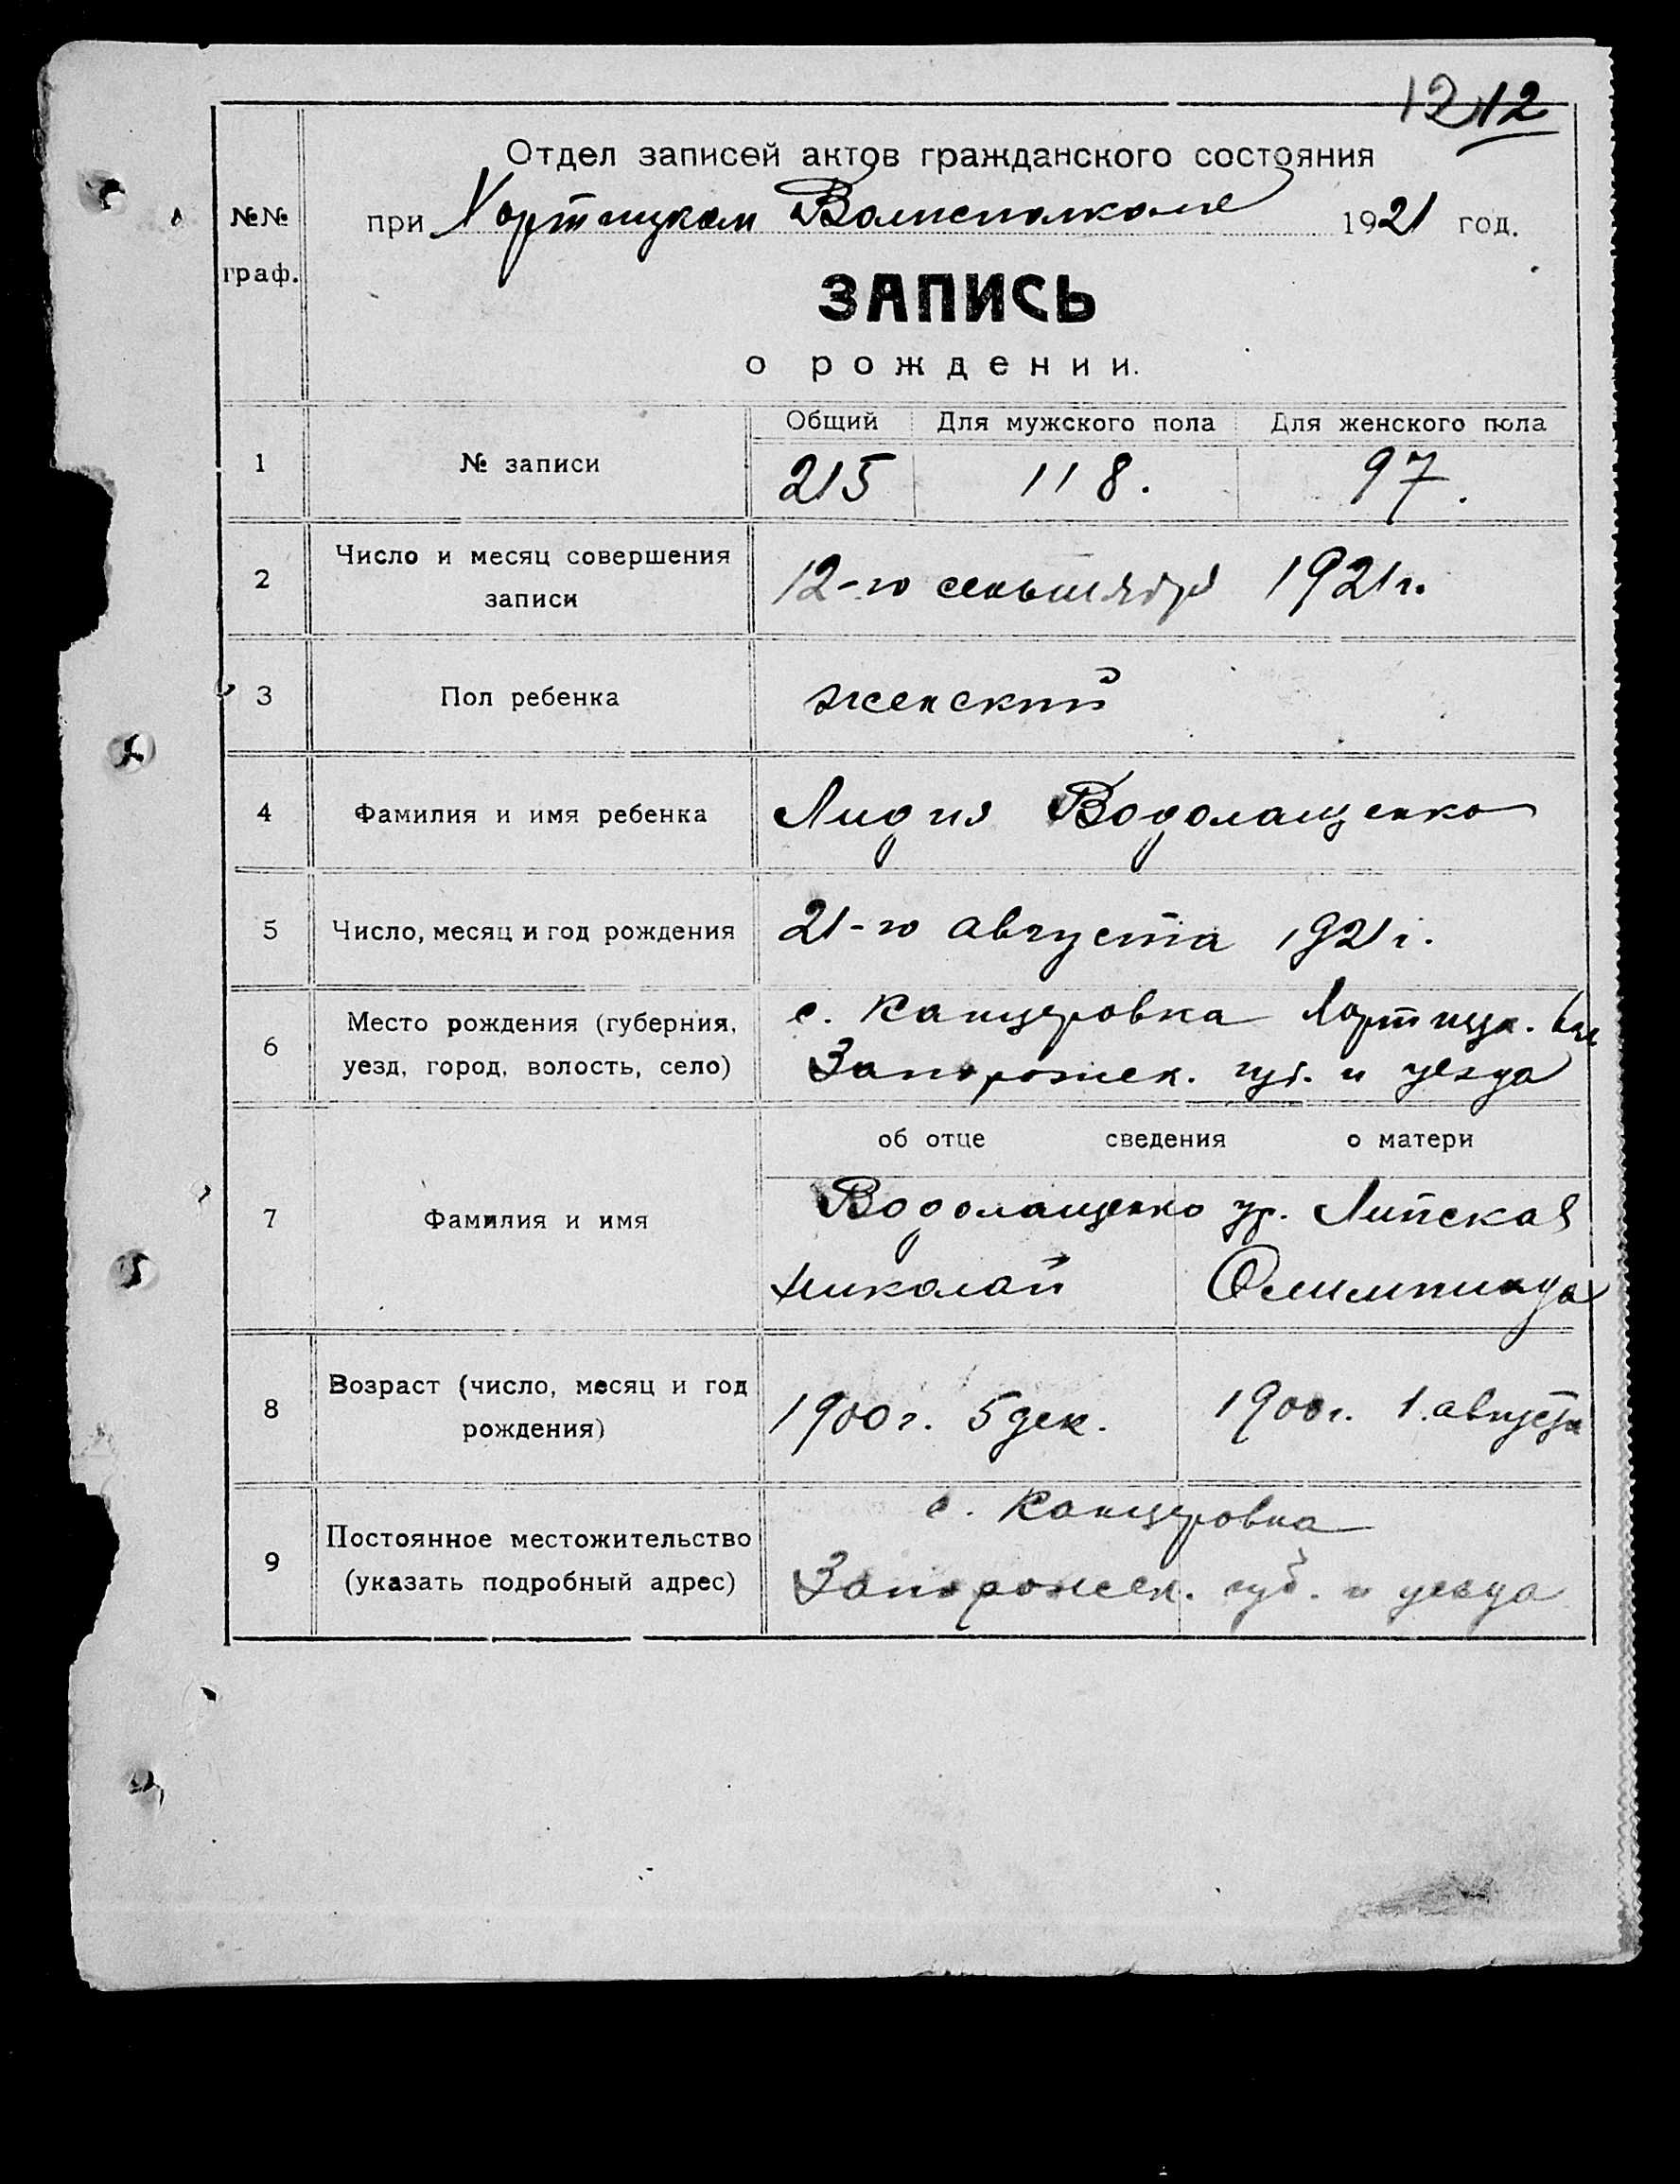 12 12
Отдел записей актов гражданского состояния
№№ граф.
при Хортицком Волисполкоме 1921 год.
ЗАПИСЬ
о рождении.
Общий Для мужского пола Для женского пола
1 № записи 215 118. 97.
2 Число и месяц совершения записи 12-го сентября 1921 г.
3 Пол ребенка женский
4 Фамилия и имя ребенка Лидия Водолащенко
5 Число, месяц и год рождения 21-го августа 1921 г.
6 Место рождения (губерния, с. Канцеровка Хортицк. вол.
уезд, город, волость, село) Запорожск. губ. и уезда
об отце сведения о матери
7 Фамилия и имя Водолащенко ур. Липская
Николай Олимпиада
8 Возраст (число, месяц и год рождения) 1900 г. 5 дек. 1900 г. 1. августа
9 Постоянное местожительство с. Канцеровка
(указать подробный адрес) Запорожск. губ. и уезда